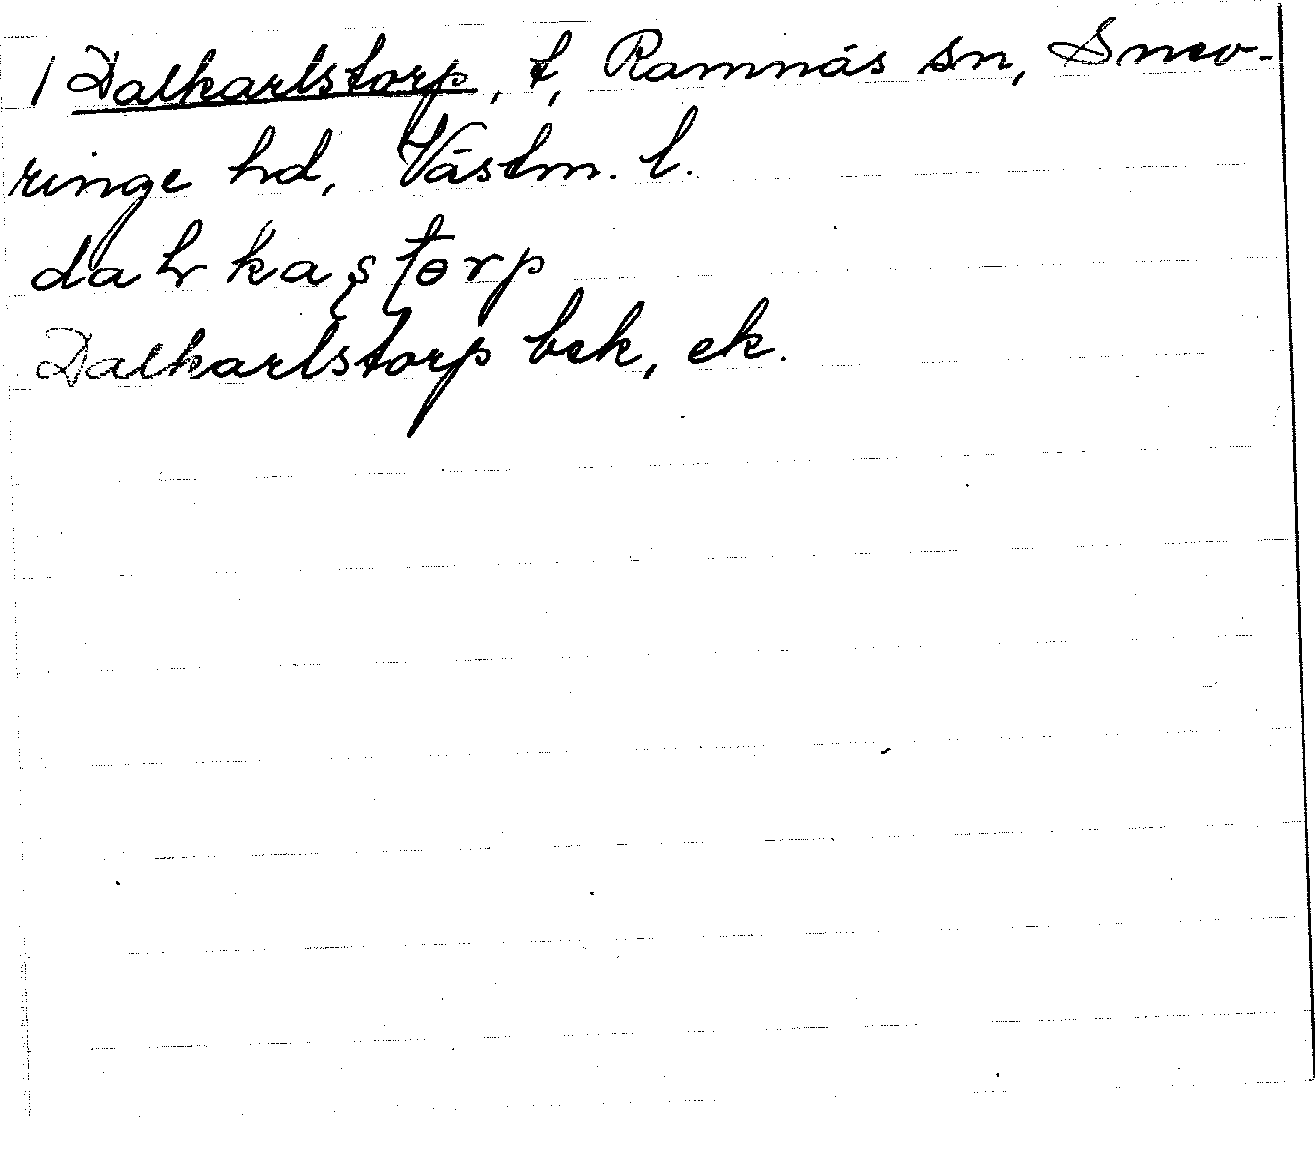 / Dalkarlstorp, t, Ramnäs sn, Snev-
ringe hd, Västm. l.
Dalkarlstorp bek, ek.